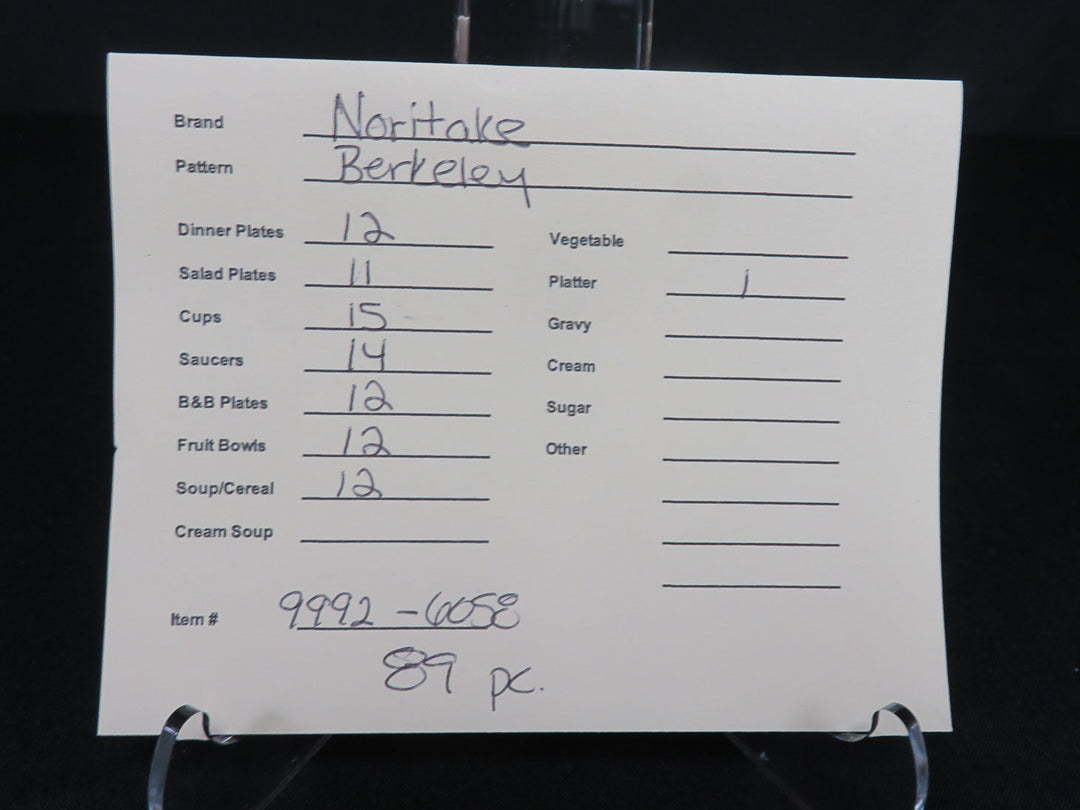 Brand Noritake
Pattern Berkeley
Dinner Plates 12
Salad Plates 11
Cups 15
Saucers 14
B&B Plates 12
Fruit Bowls 12
Soup/Cereal 12
Cream Soup
Vegetable
Platter 1
Gravy
Cream
Sugar
Other
Item # 9992-6058
89 pc.